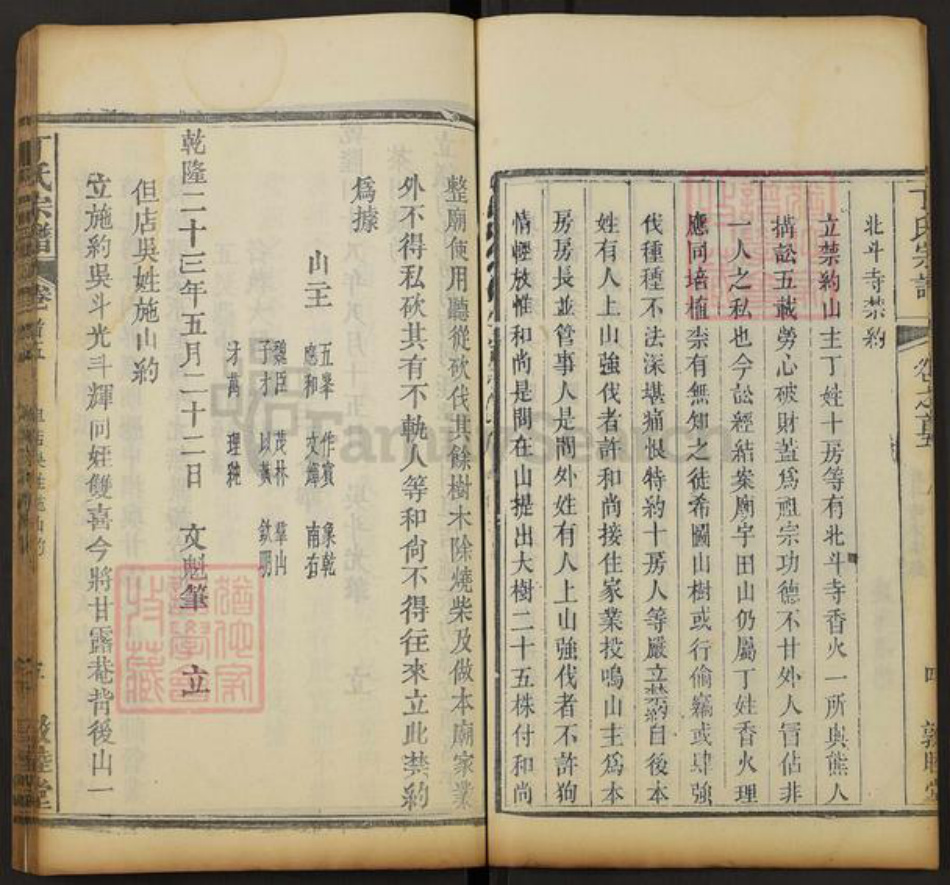 丁氏宗譜
卷之首五
四
敦睦堂
北斗寺禁約
立禁約山主丁姓十房等有北斗寺香火一所與熊人
搆訟五載勞心破財蓋爲祖宗功德不甘外人冒佔非
一人之私也今訟經結案廟宇田山仍屬丁姓香火理
應同培植祟有無知之徒希圖山樹或行偷竊或肆強
伐種種不法深堪痛恨特約十房人等嚴立禁約自後本
姓有人上山強伐者許和尚接住家業投鳴山主爲本
房房長並管事人是問外姓有人上山強伐者不許狥
情輕放惟和尚是問在山提出大樹二十五株付和尚
整廟使用聽從砍伐其餘樹木除燒柴及做本廟家業
外不得私砍其有不軌人等和尙不得往來立此禁約
爲據
山主
五峯 作賓 象乾
應和 文燁 南右
魏臣 茂林 羣山
子才 以黃 欽明
才萬 理純
乾隆二十三年五月二十二日 文魁筆 立
但店吳姓施山約
立施約吳斗光斗輝同姪雙喜今將甘露菴背後山一
丁氏宗譜
卷首五
五
敦睦堂
FamilySearch